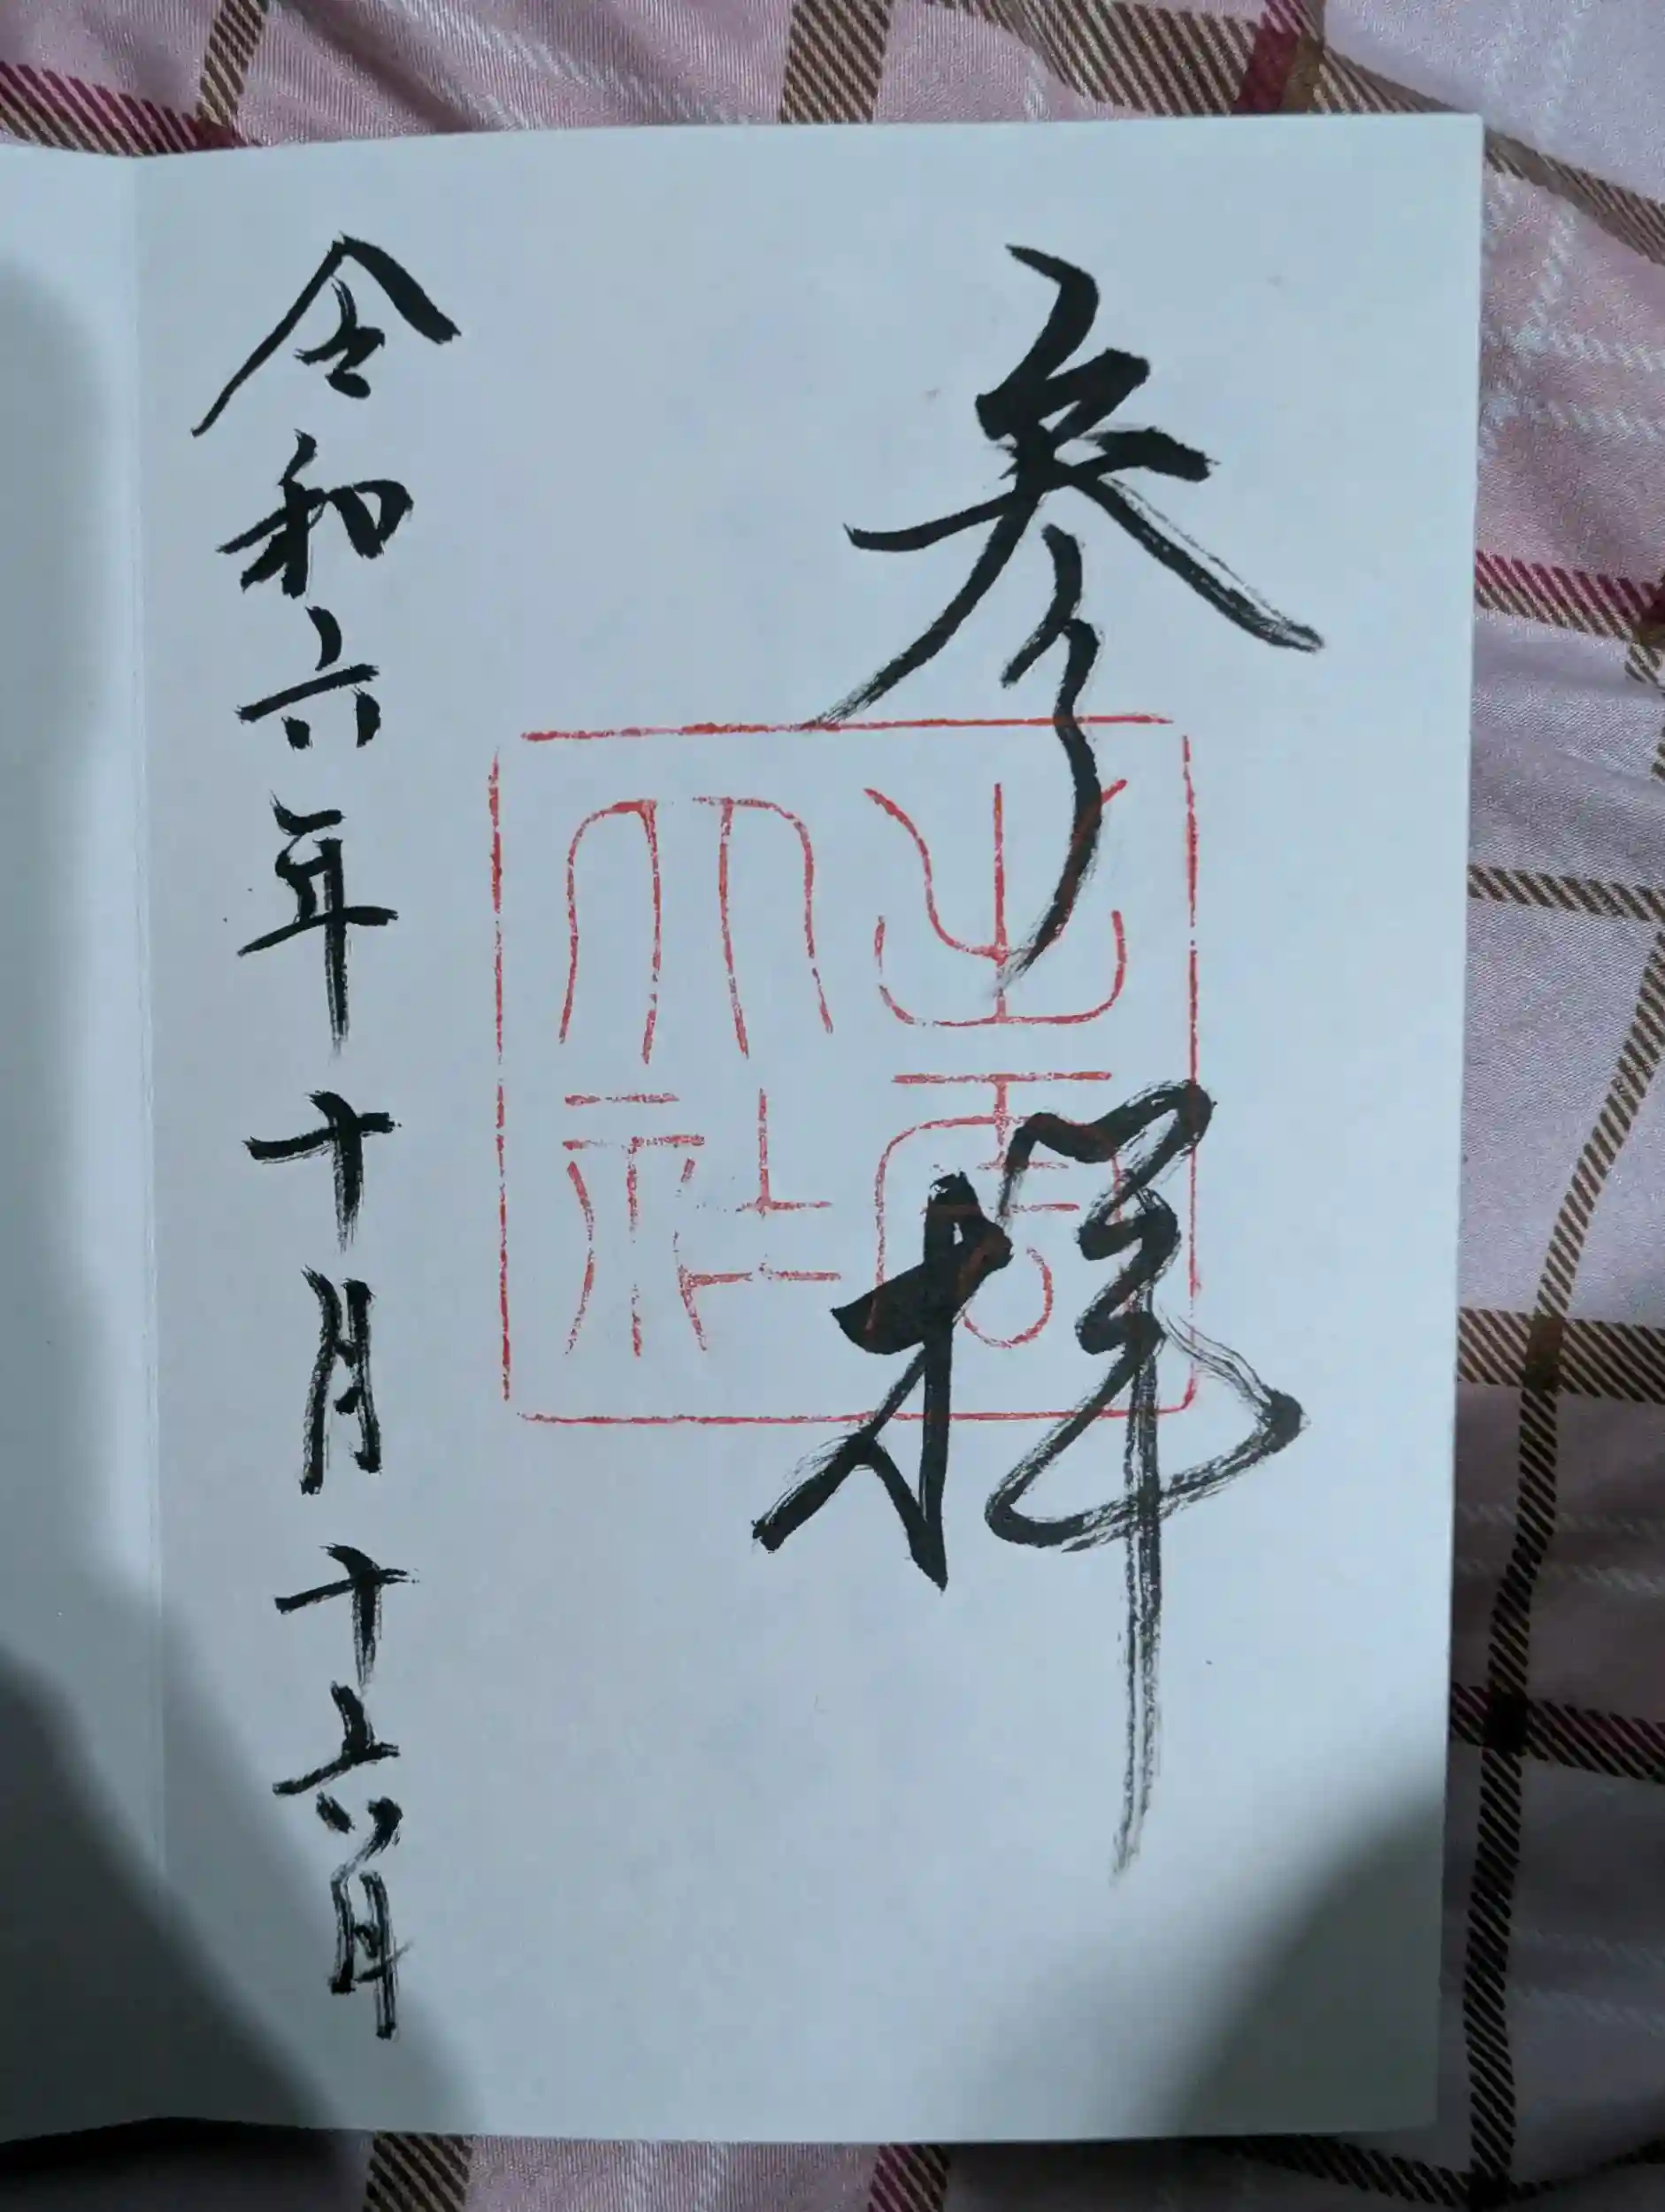 参拝
出雲
大社
令和六年十月十六日